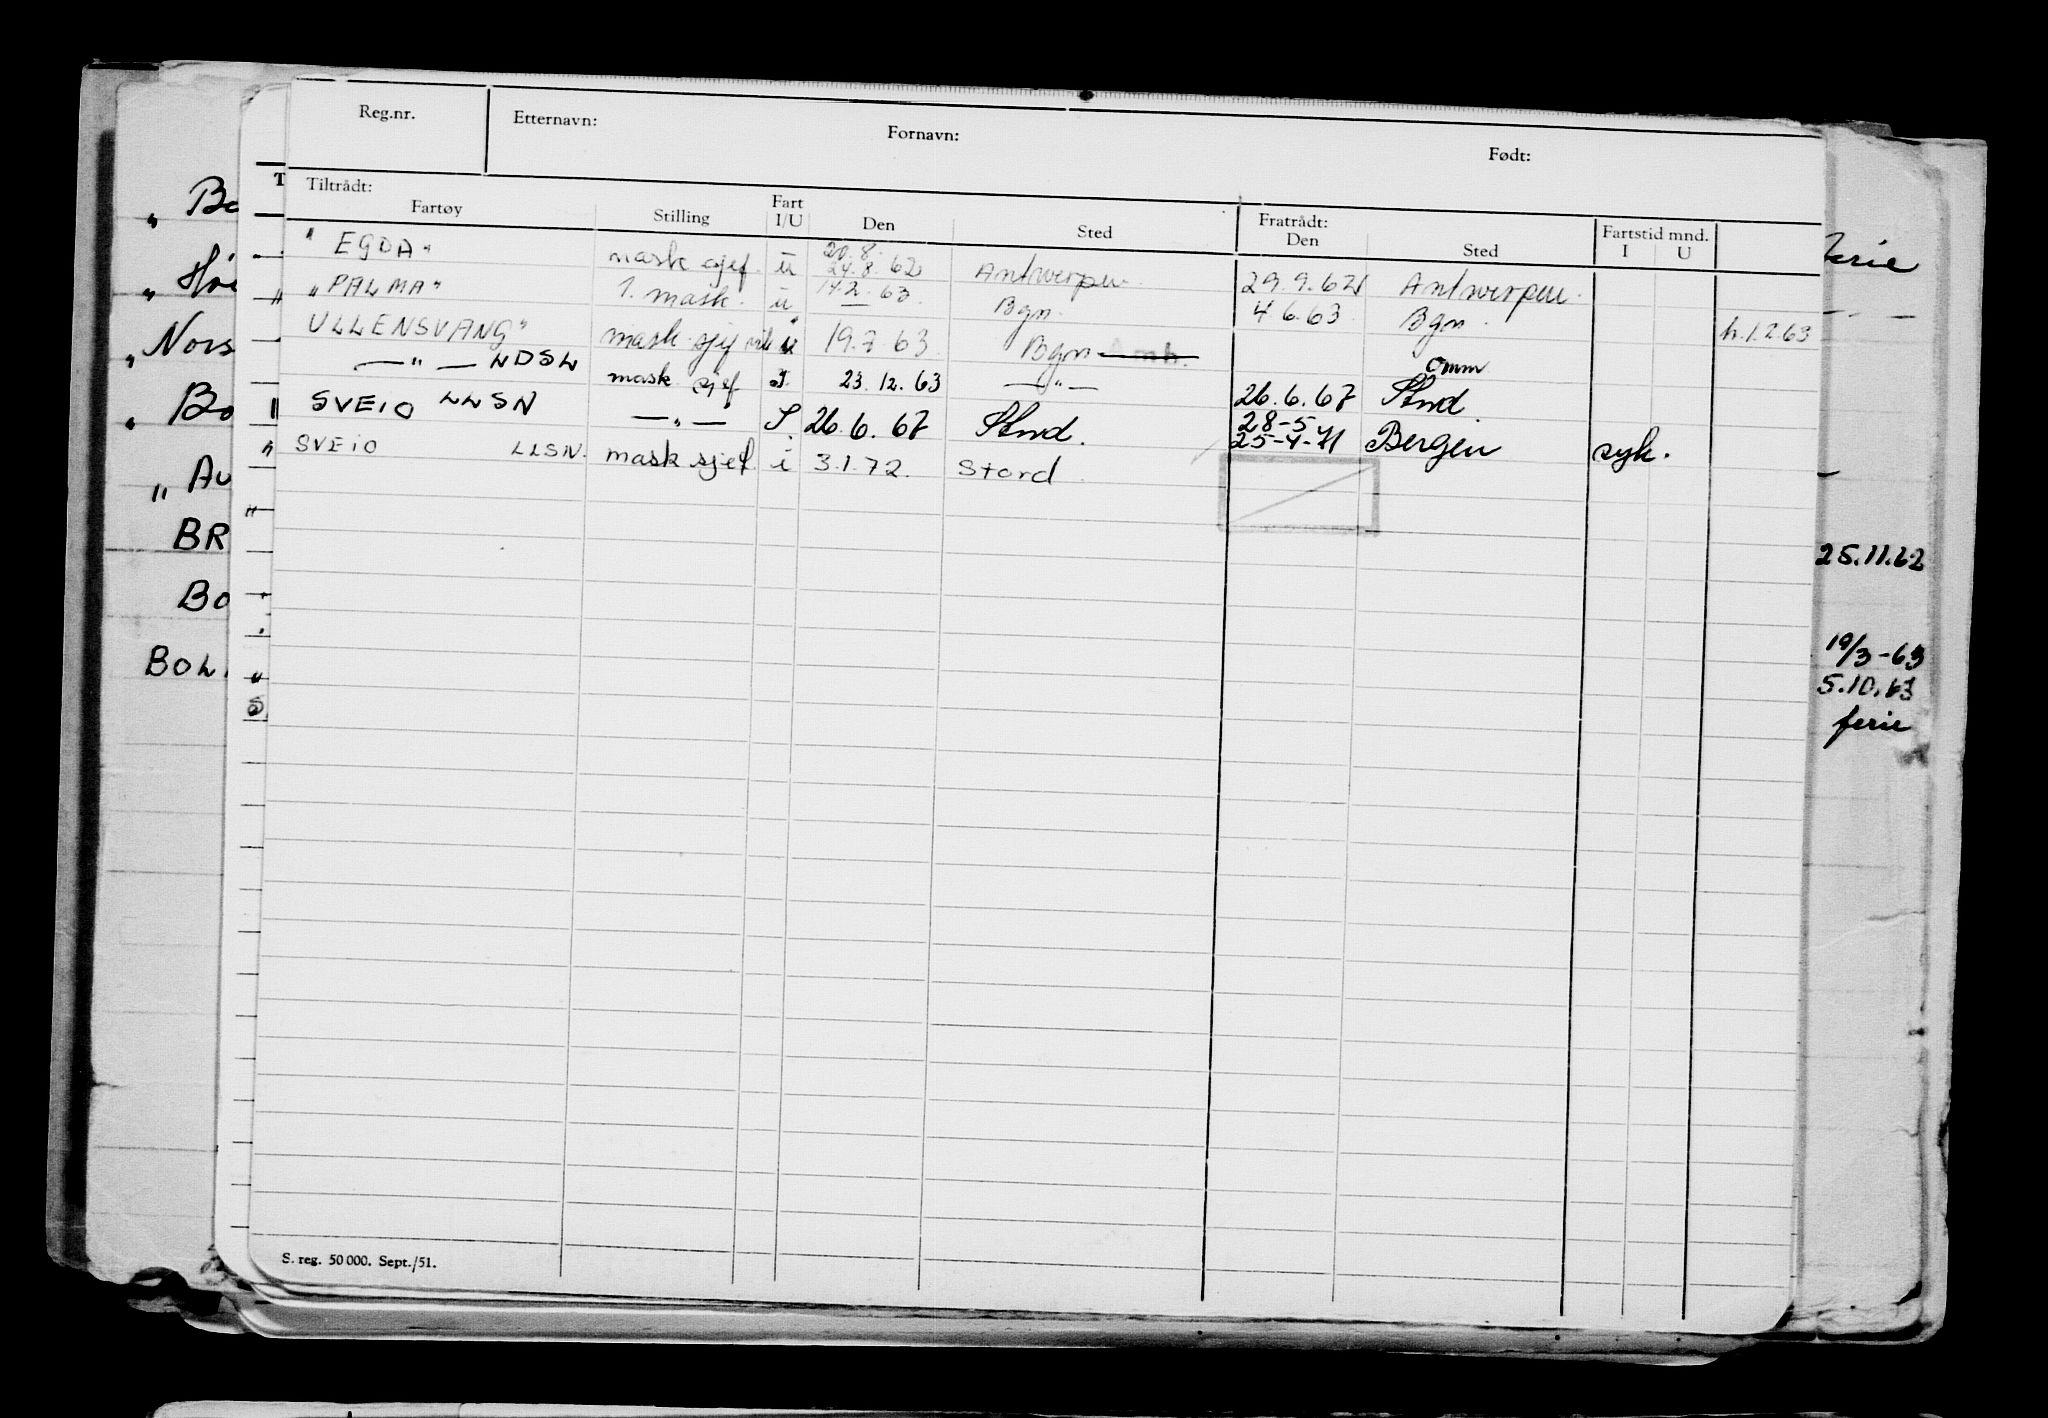 Reg.nr. Etternavn: Fornavn: Født:
Tiltrådt: Fratrådt: Fartstid mnd.
Fartøy Stilling Fart I/U Den Sted Den Sted I U
" EGDA " mask sjef. u 20.8. 24.8.62 Antwerpen. 29.9.62 Antwerpen.
" PALMA " 1. mask. u 14.2.63 Bgn. 4.6.63 Bgn. h.1.2.63
ULLENSVANG" mask. sjef u 19.7.63 Bgn
— " — LDSL mask. sjef I. 23.12.63 — " — 26.6.67 omm Stord
SVEIO LLSN — " — I. 26.6.67 Stord. 28-5- 25-4-71 Bergen syk.
SVEIO LLSN. mask sjef i 3.1.72. Stord
S. reg. 50 000. Sept./51.
" Bo
" Høi
" Nors
" Bo
" Au
BR
Bo
BOL
ferie
25.11.62
19/3-63
5.10.63
ferie